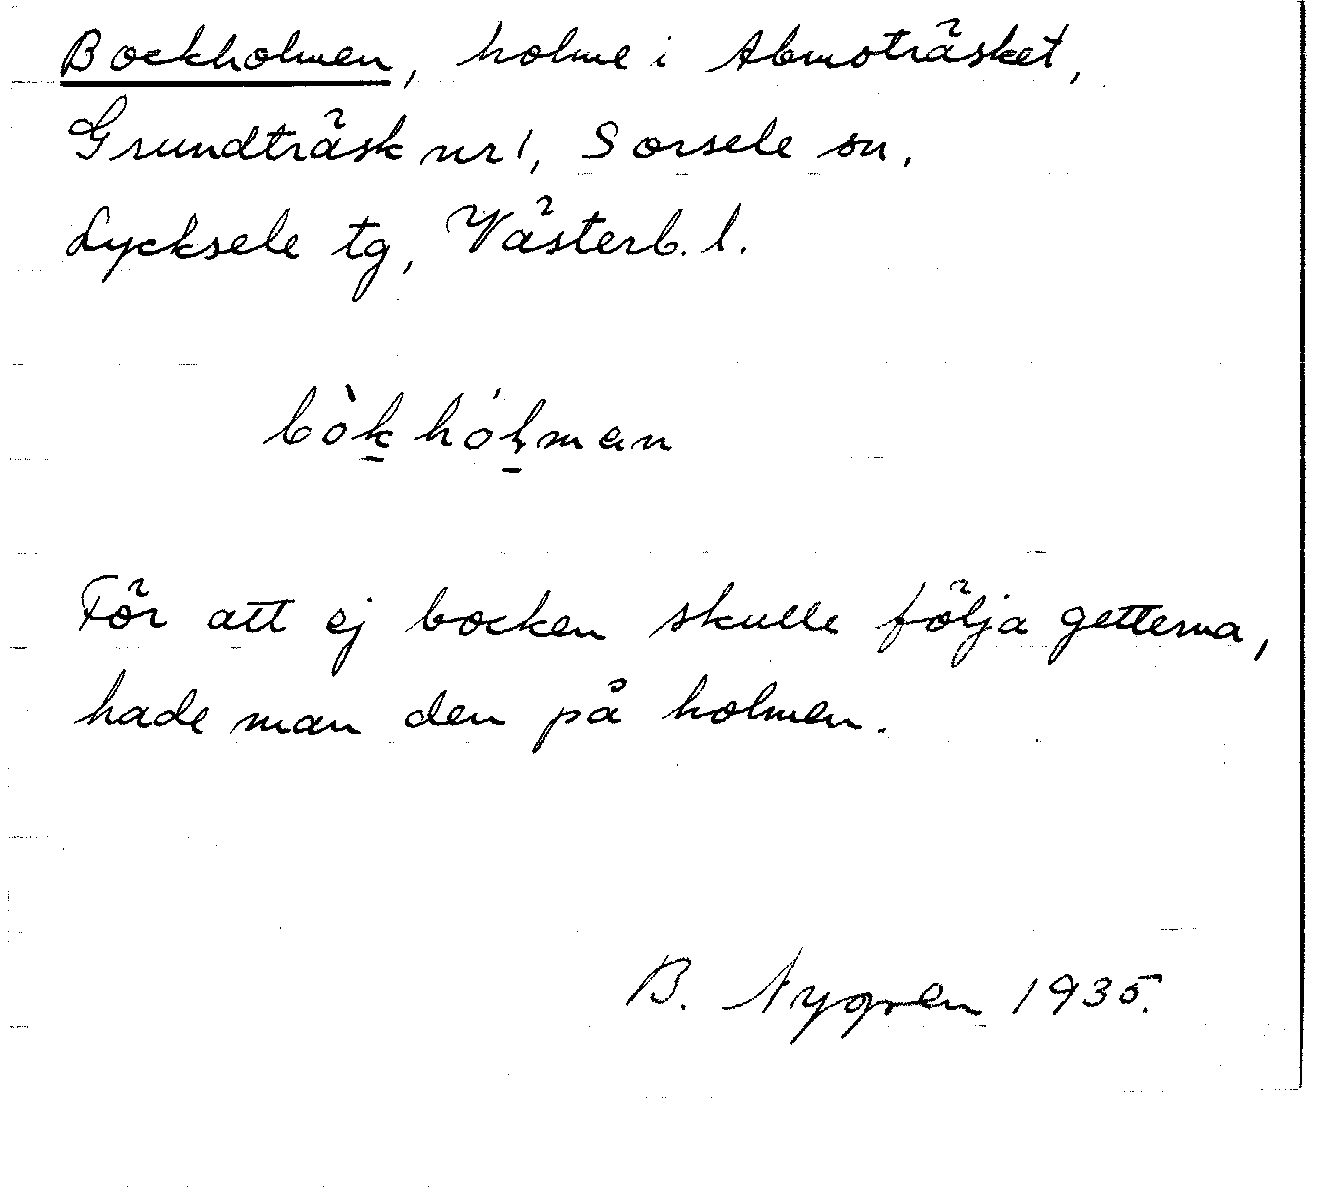 Bockholmen, holme i Abmoträsket,
Grundträsk nr 1, Sorsele sn,
Lycksele tg, Västerb. l.
bòk hólman
För att ej bocken skulle följa getterna,
hade man den på holmen.
B. Nygren 1935.